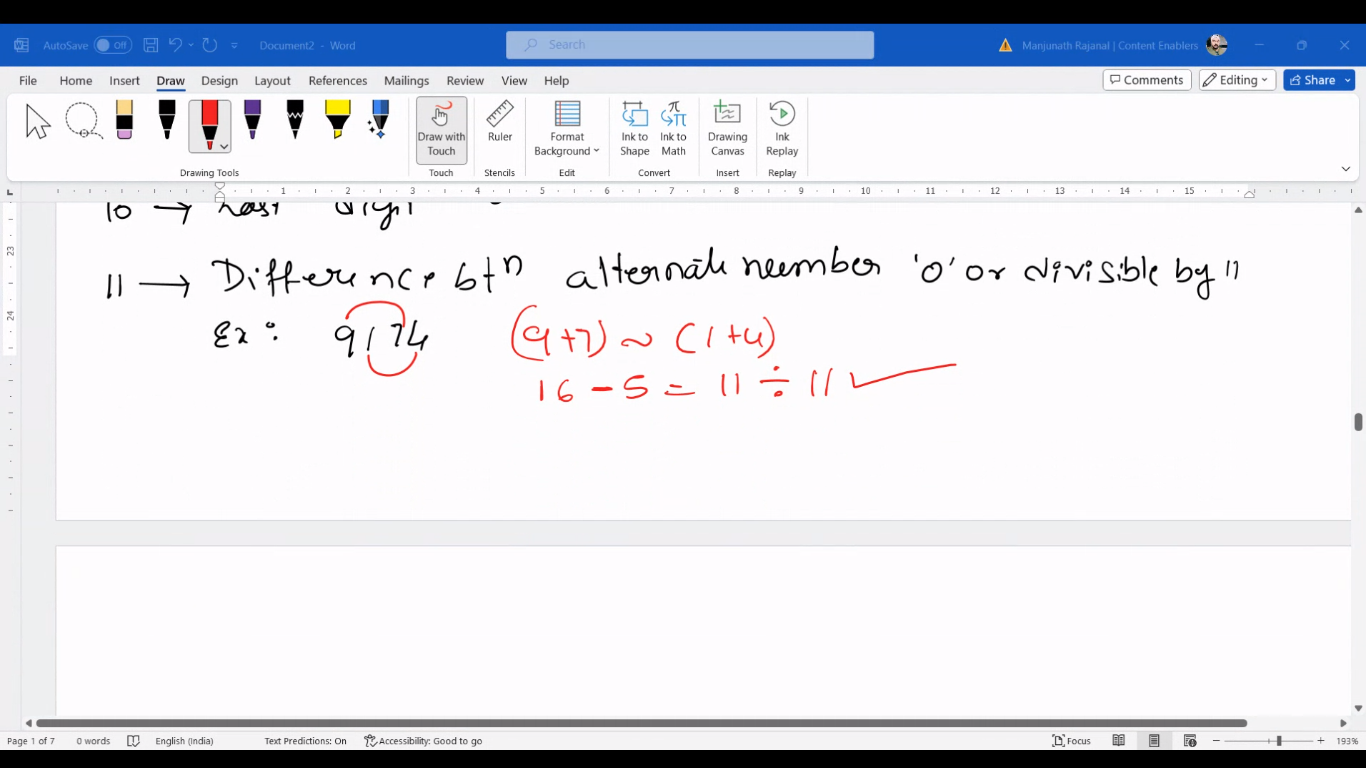 AutoSave Off Document2 - Word Search Manjunath Rajanal | Content Enablers
File Home Insert Draw Design Layout References Mailings Review View Help Comments Editing Share
Draw with Touch Ruler Format Background Ink to Shape Ink to Math Drawing Canvas Ink Replay
Drawing Tools Touch Stencils Edit Convert Insert Replay
1 2 3 4 5 6 7 8 9 10 11 12 13 14 15
23
24
10 → Last digit
11 → Difference btn alternate number '0' or divisible by 11
Ex: 9174 (9+7) ~ (1+4)
16 - 5 = 11 ÷ 11 ✓
Page 1 of 7 0 words English (India) Text Predictions: On Accessibility: Good to go Focus 193%